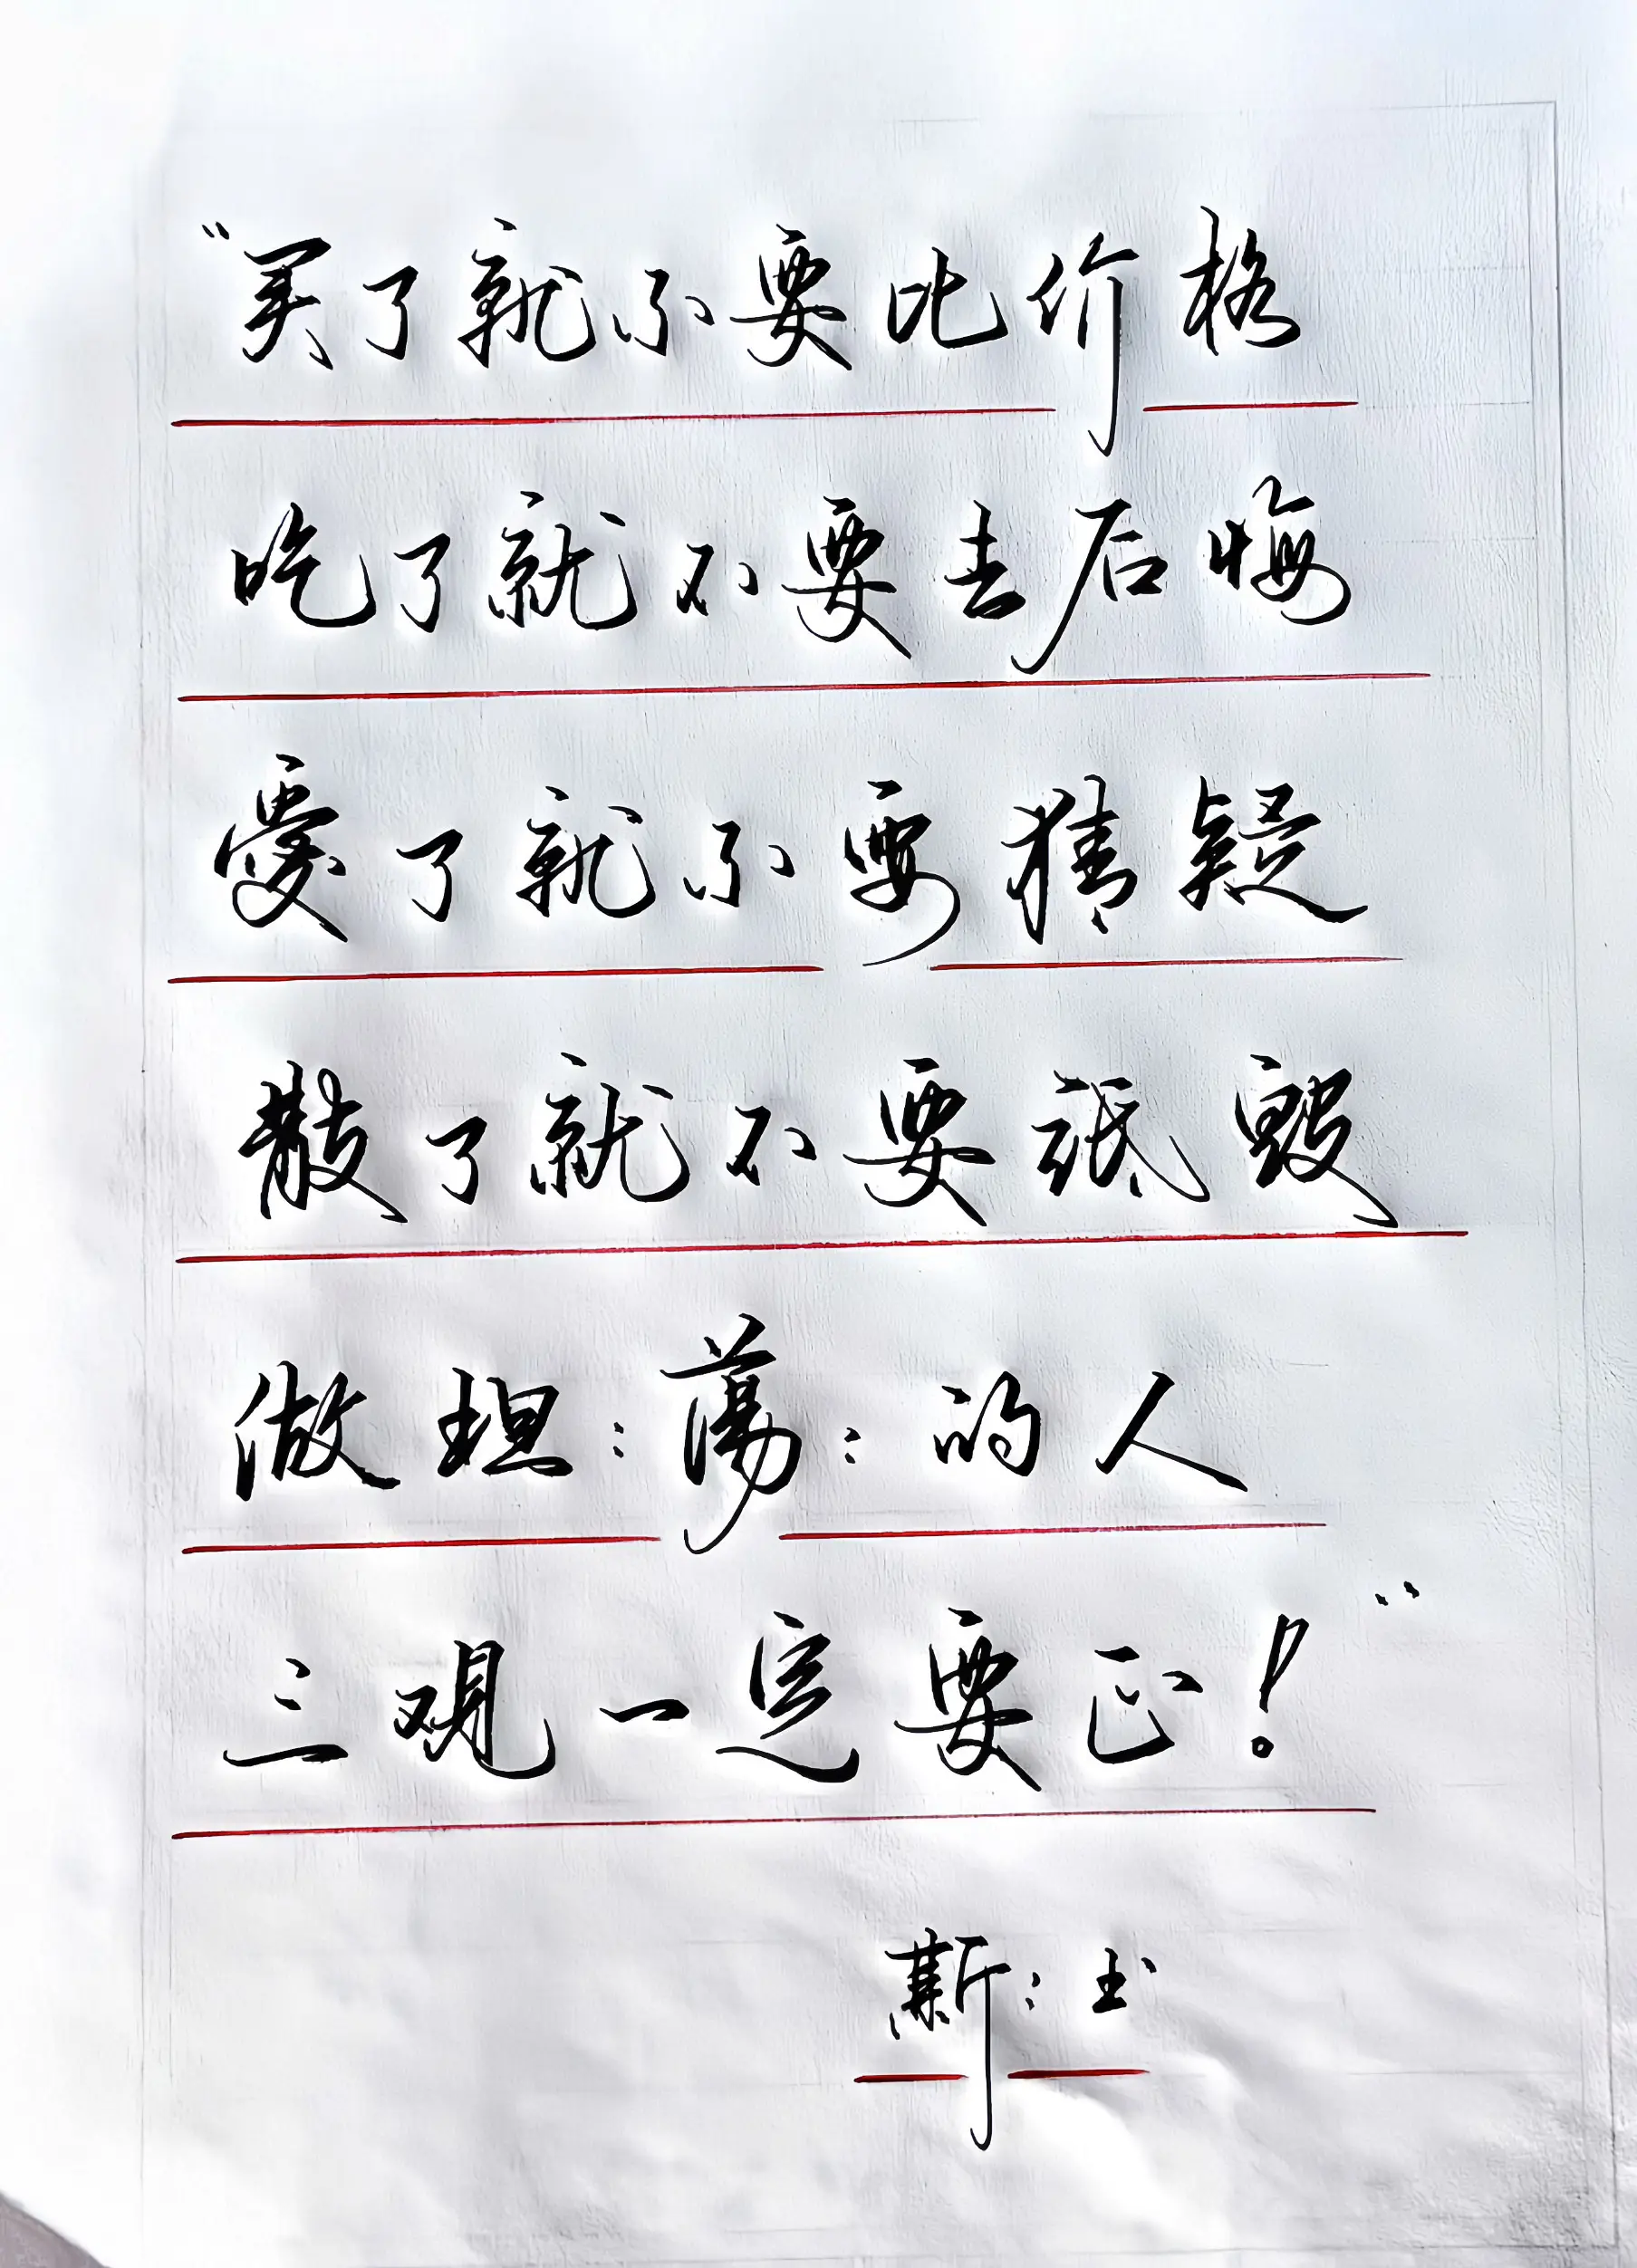 “买了就不要比价格
吃了就不要去后悔
愛了就不要猜疑
散了就不要诋毁
做坦:荡:的人
三观一定要正!”
斯:书